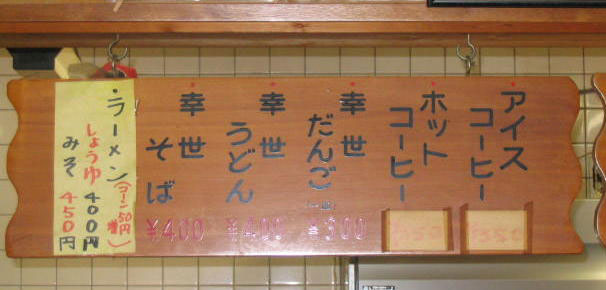 アイス
コーヒー
¥350
ホット
コーヒー
¥350
幸世
だんご
¥300
幸世
うどん
¥400
幸世
そば
¥400
・ラーメン
(コーン50円増)
しょうゆ 400円
みそ 450円